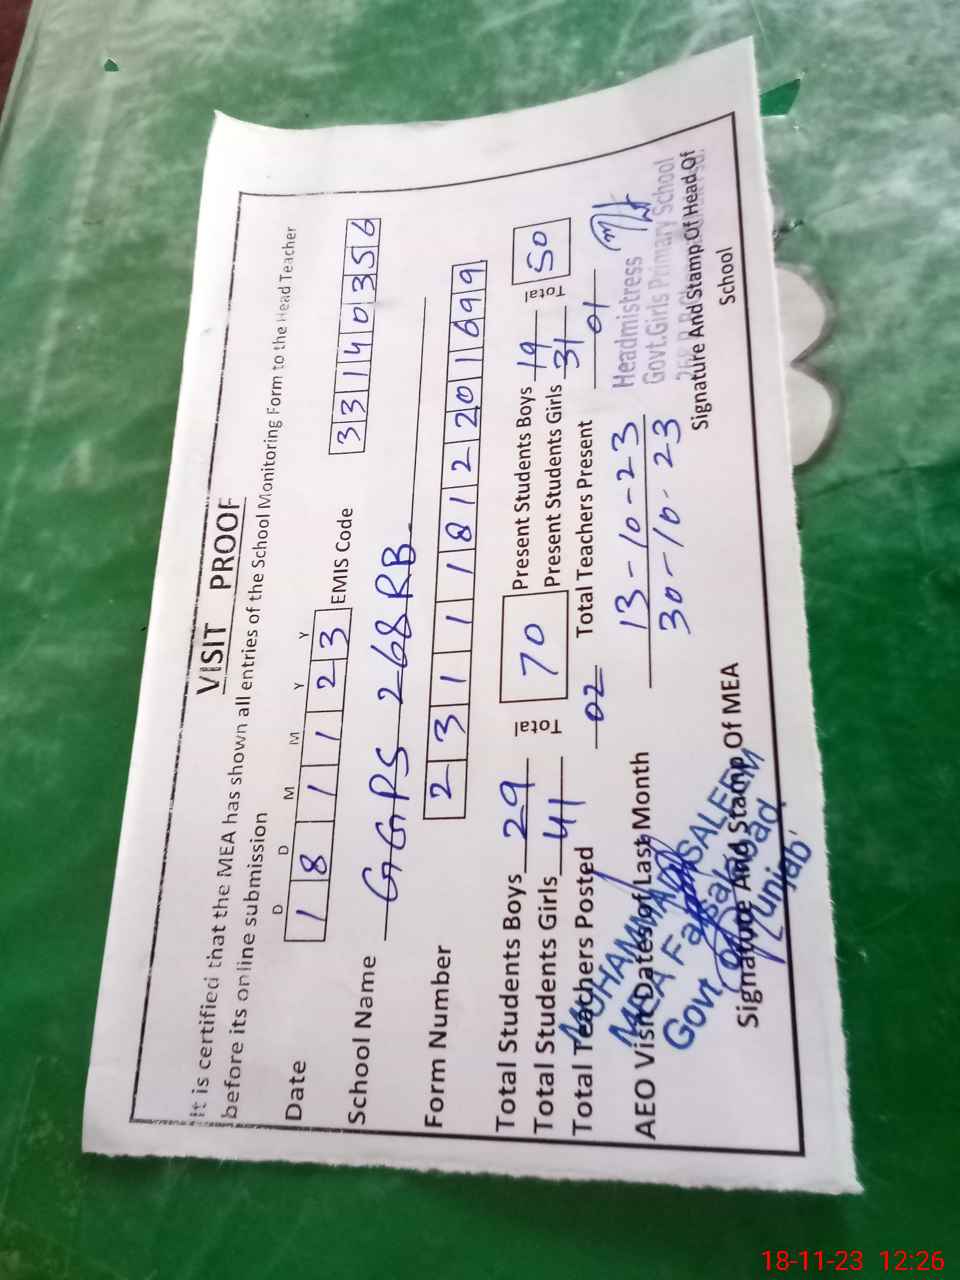 VISIT PROOF
It is certified that the MEA has shown all entries of the School Monitoring Form to the Head Teacher
before its online submission
D D M M Y Y
Date 1 8 1 1 2 3 EMIS Code 3 3 1 4 0 3 5 6
School Name GGPS 268 RB
Form Number 2 3 1 1 1 8 1 2 2 0 1 6 9 9
Total Students Boys 29 Total 70 Present Students Boys 19 Total 50
Total Students Girls 41 Present Students Girls 31
Total Teachers Posted 02 Total Teachers Present 01
AEO Visit Dates of Last Month 13-10-23
30-10-23
MUHAMMAD SALEEM
MEA Faisalabad
Govt Punjab
Headmistress
Govt.Girls Primary School
Signature And Stamp Of MEA
Signature And Stamp Of Head Of
School
18-11-23 12:26